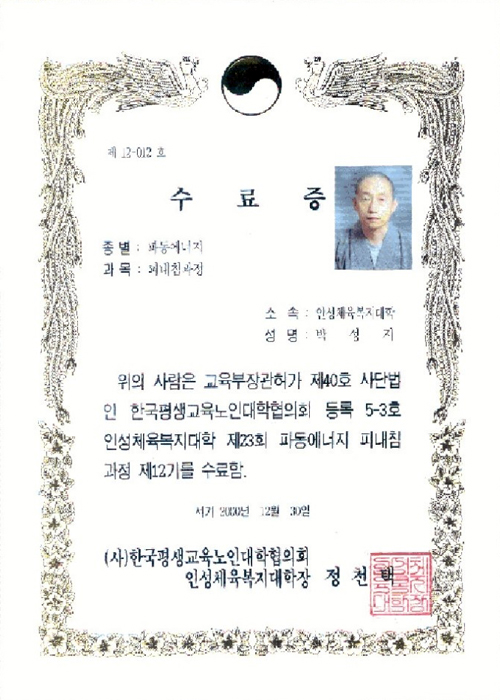 제 12-012 호
수 료 증
종 별 : 파동에너지
과 목 : 피내침과정
소 속 : 인성체육복지대학
성 명 : 박 성 지
위의 사람은 교육부장관허가 제40호 사단법
인 한국평생교육노인대학협의회 등록 5-3호
인성체육복지대학 제23회 파동에너지 피내침
과정 제12기를 수료함.
서기 2000년 12월 30일
(사)한국평생교육노인대학협의회
인성체육복지대학장 정 천 택